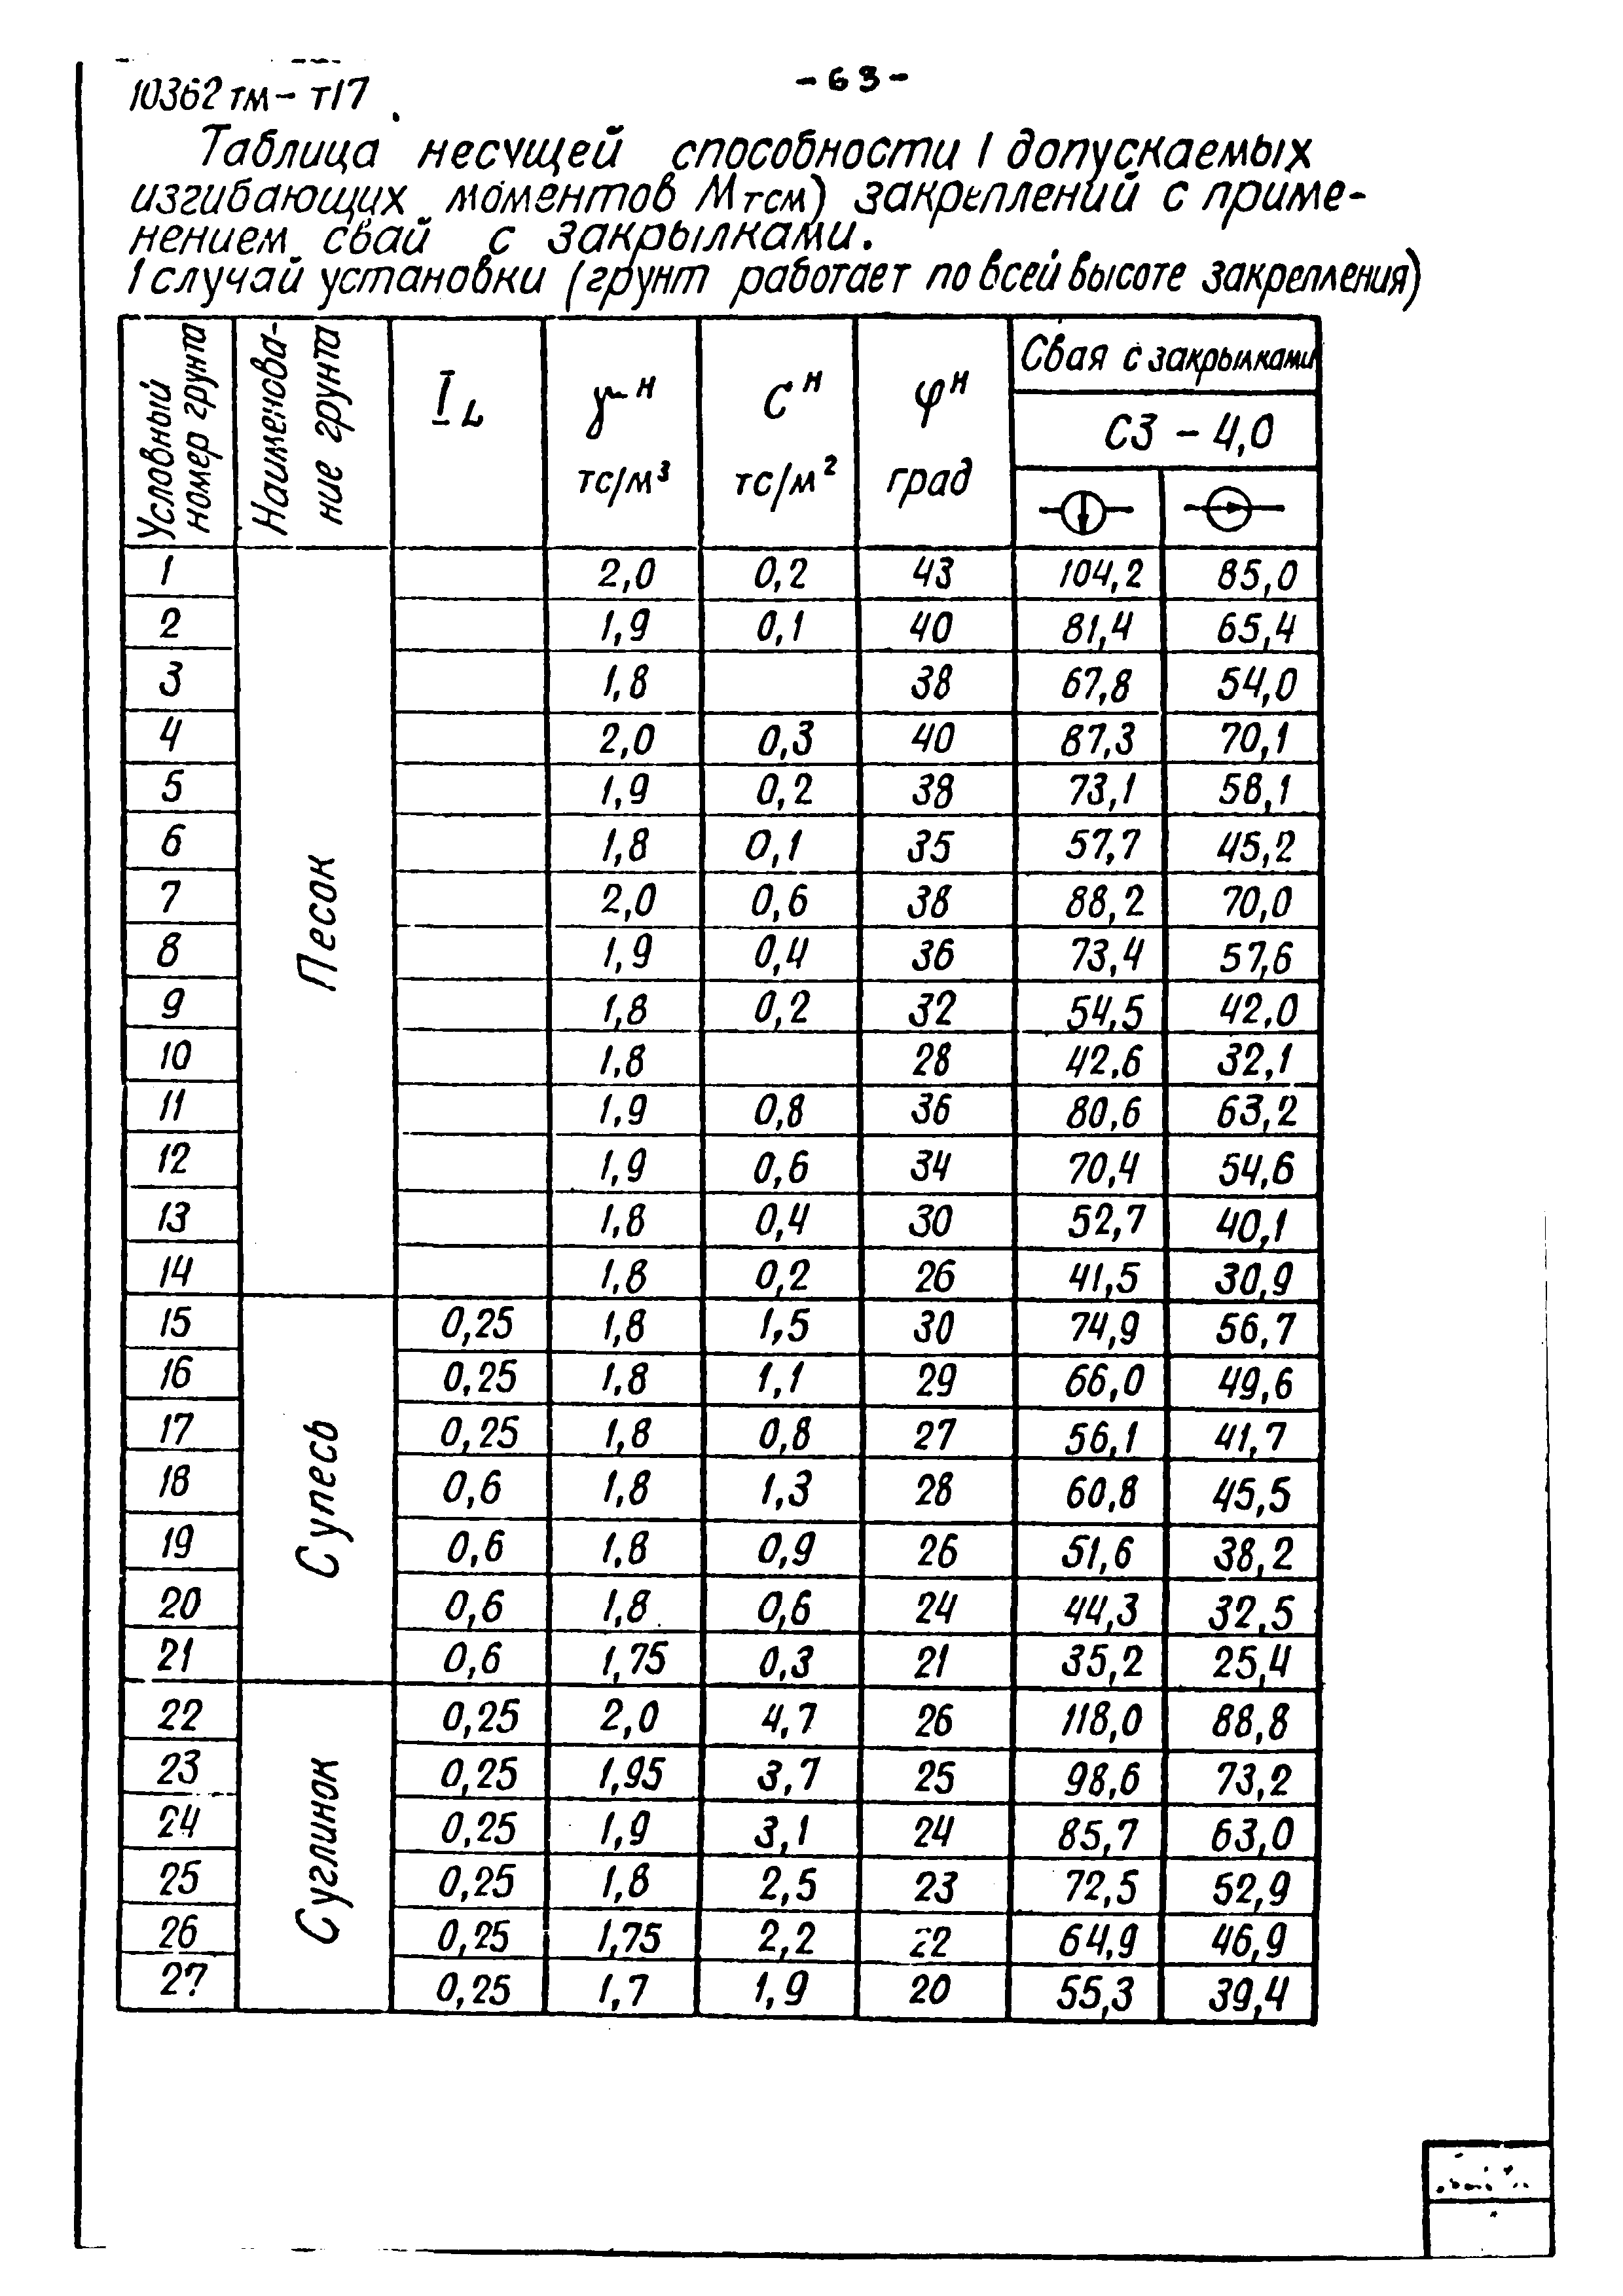 10362 тм - т17
- 63 -
Таблица несущей способности (допускаемых
изгибающих моментов М тсм) закреплений с приме-
нением свай с закрылками.
1 случай установки (грунт работает по всей высоте закрепления)
Условный номер грунта | Наименова-ние грунта | I L | γ н тс/м³ | С н тс/м² | φ н град | Свая с закрылками
С3 - 4,0
Песок
1 2,0 0,2 43 104,2 85,0
2 1,9 0,1 40 81,4 65,4
3 1,8 38 67,8 54,0
4 2,0 0,3 40 87,3 70,1
5 1,9 0,2 38 73,1 58,1
6 1,8 0,1 35 57,7 45,2
7 2,0 0,6 38 88,2 70,0
8 1,9 0,4 36 73,4 57,6
9 1,8 0,2 32 54,5 42,0
10 1,8 28 42,6 32,1
11 1,9 0,8 36 80,6 63,2
12 1,9 0,6 34 70,4 54,6
13 1,8 0,4 30 52,7 40,1
14 1,8 0,2 26 41,5 30,9
Супесь
15 0,25 1,8 1,5 30 74,9 56,7
16 0,25 1,8 1,1 29 66,0 49,6
17 0,25 1,8 0,8 27 56,1 41,7
18 0,6 1,8 1,3 28 60,8 45,5
19 0,6 1,8 0,9 26 51,6 38,2
20 0,6 1,8 0,6 24 44,3 32,5
21 0,6 1,75 0,3 21 35,2 25,4
Суглинок
22 0,25 2,0 4,7 26 118,0 88,8
23 0,25 1,95 3,7 25 98,6 73,2
24 0,25 1,9 3,1 24 85,7 63,0
25 0,25 1,8 2,5 23 72,5 52,9
26 0,25 1,75 2,2 22 64,9 46,9
27 0,25 1,7 1,9 20 55,3 39,4